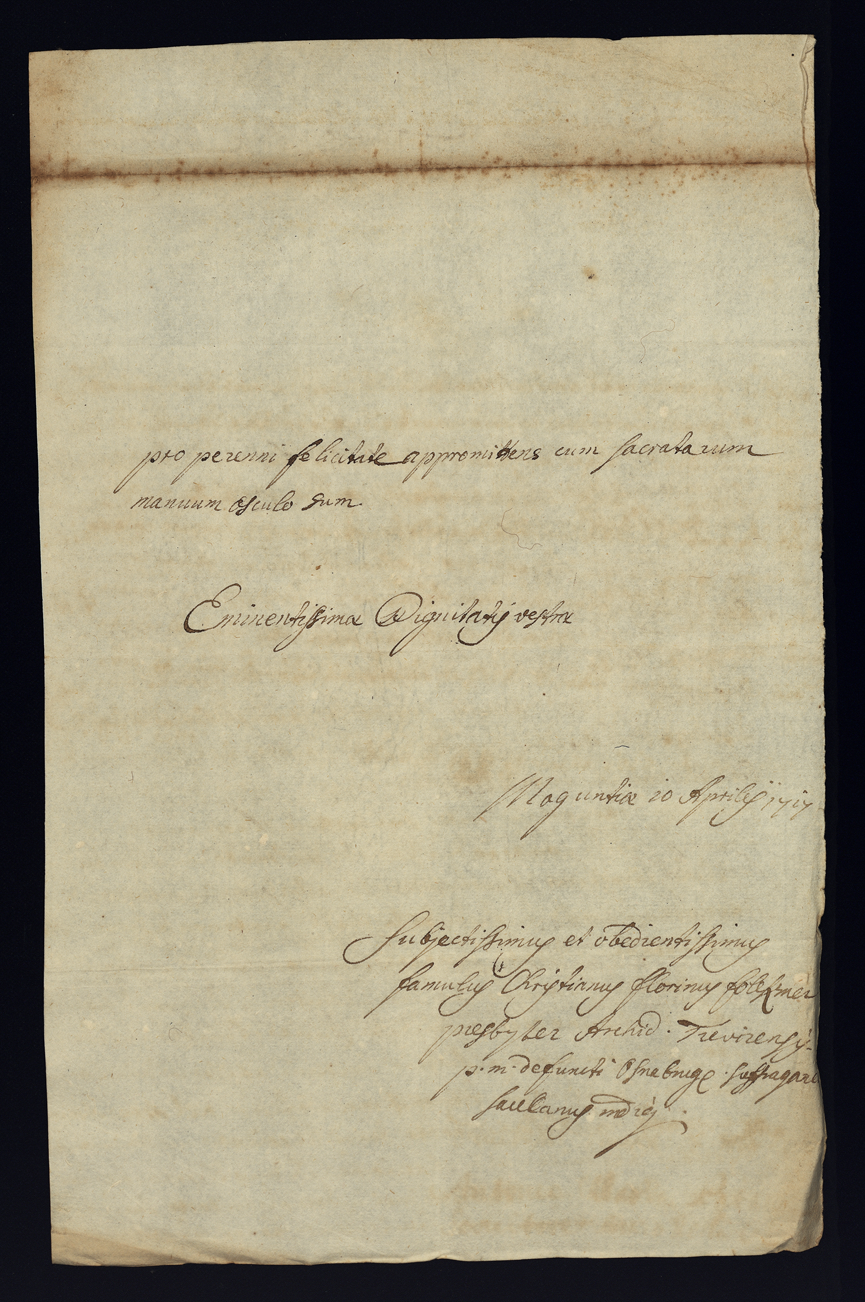 pro perenni felicitate appromittens cum sacratarum
manuum osculo sum.
Eminentissimæ Dignitatis vestræ
Moguntiæ 20 Aprilis 1717
Subjectissimus et obedientissimus
famulus Christianus florinus
presbyter Archid. Trevirensis
p. m. defuncti Osnabrug. suffraganei
sacellanus indig.